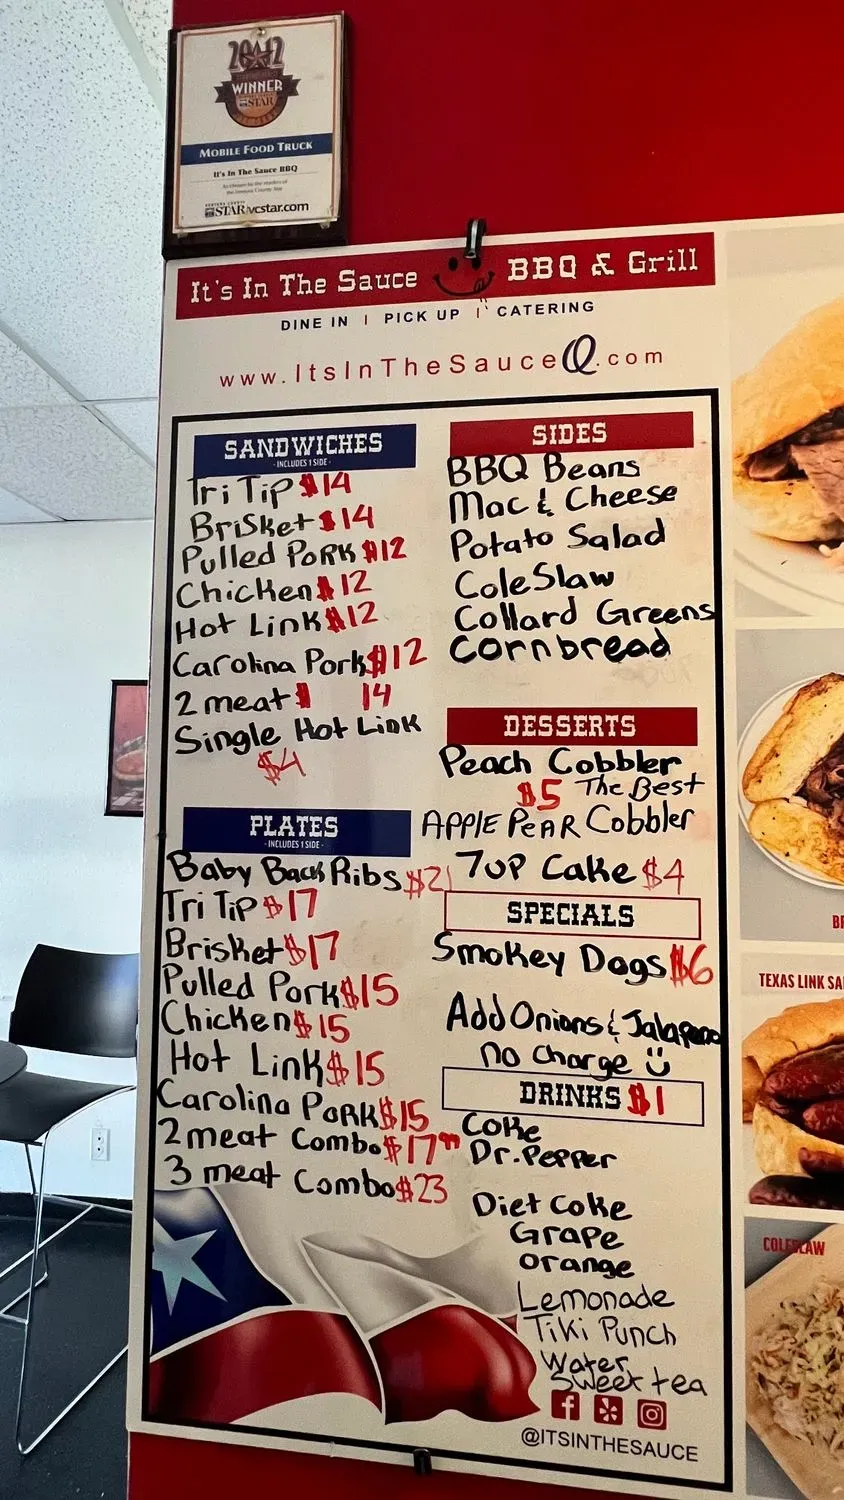 2012
WINNER
STAR
MOBILE FOOD TRUCK
It's In The Sauce BBQ
As chosen by the readers of
the Ventura County Star
VENTURA COUNTY
STAR vcstar.com
It's In The Sauce BBQ & Grill
DINE IN | PICK UP | CATERING
www.ItsInTheSauceQ.com
SANDWICHES
- INCLUDES 1 SIDE -
Tri Tip $14
Brisket $14
Pulled Pork $12
Chicken $12
Hot Link $12
Carolina Pork $12
2 meat $ 14
Single Hot Link
$4
PLATES
- INCLUDES 1 SIDE -
Baby Back Ribs $21
Tri Tip $17
Brisket $17
Pulled Pork $15
Chicken $15
Hot Link $15
Carolina Pork $15
2 meat Combo $17.99
3 meat Combo $23
SIDES
BBQ Beans
Mac & Cheese
Potato Salad
Cole Slaw
Collard Greens
Cornbread
DESSERTS
Peach Cobbler
$5 The Best
APPLE PEAR Cobbler
7UP Cake $4
SPECIALS
Smokey Dogs $6
Add Onions & Jalapeno
no charge
DRINKS $1
Coke
Dr. Pepper
Diet Coke
Grape
Orange
Lemonade
Tiki Punch
Water
Sweet tea
@ITSINTHESAUCE
BR
TEXAS LINK SA
COLESLAW